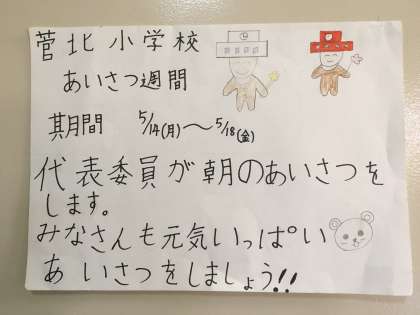 菅北小学校
あいさつ週間
期間 5/14(月)～5/18(金)
代表委員が朝のあいさつを
します。
みなさんも元気いっぱい
あいさつをしましょう!!